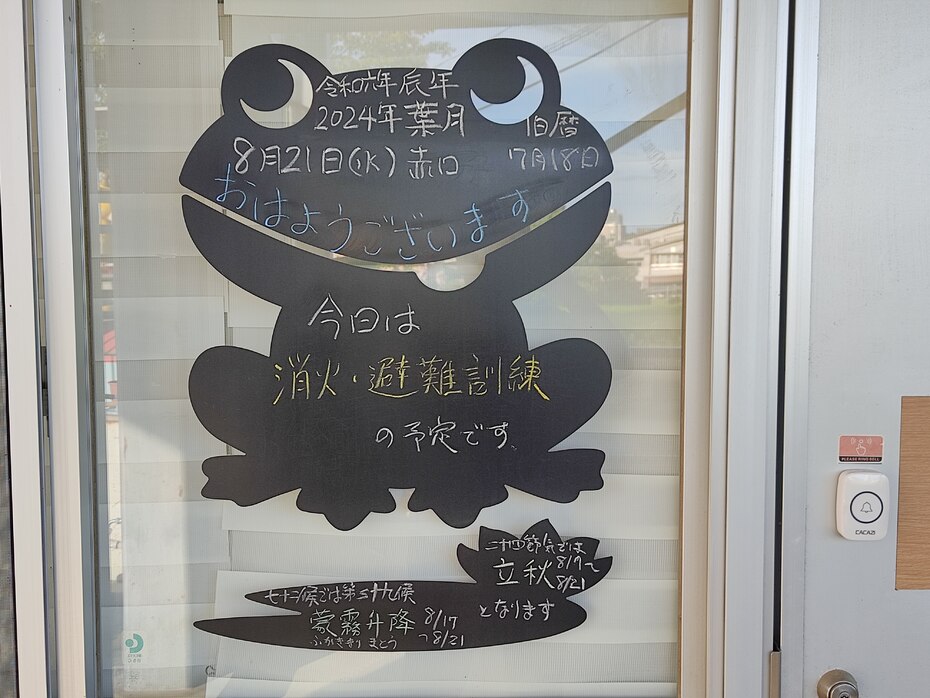 令和六年 辰年
2024年 葉月
旧暦
8月21日(水) 赤口
7月18日
おはようございます
今日は
消火・避難訓練
の予定です
PLEASE RING BELL
CACAZI
二十四節気では
立秋 8/7〜8/21
七十二候では第三十九候
蒙霧升降 8/17〜8/21
ふかききり まとう
となります